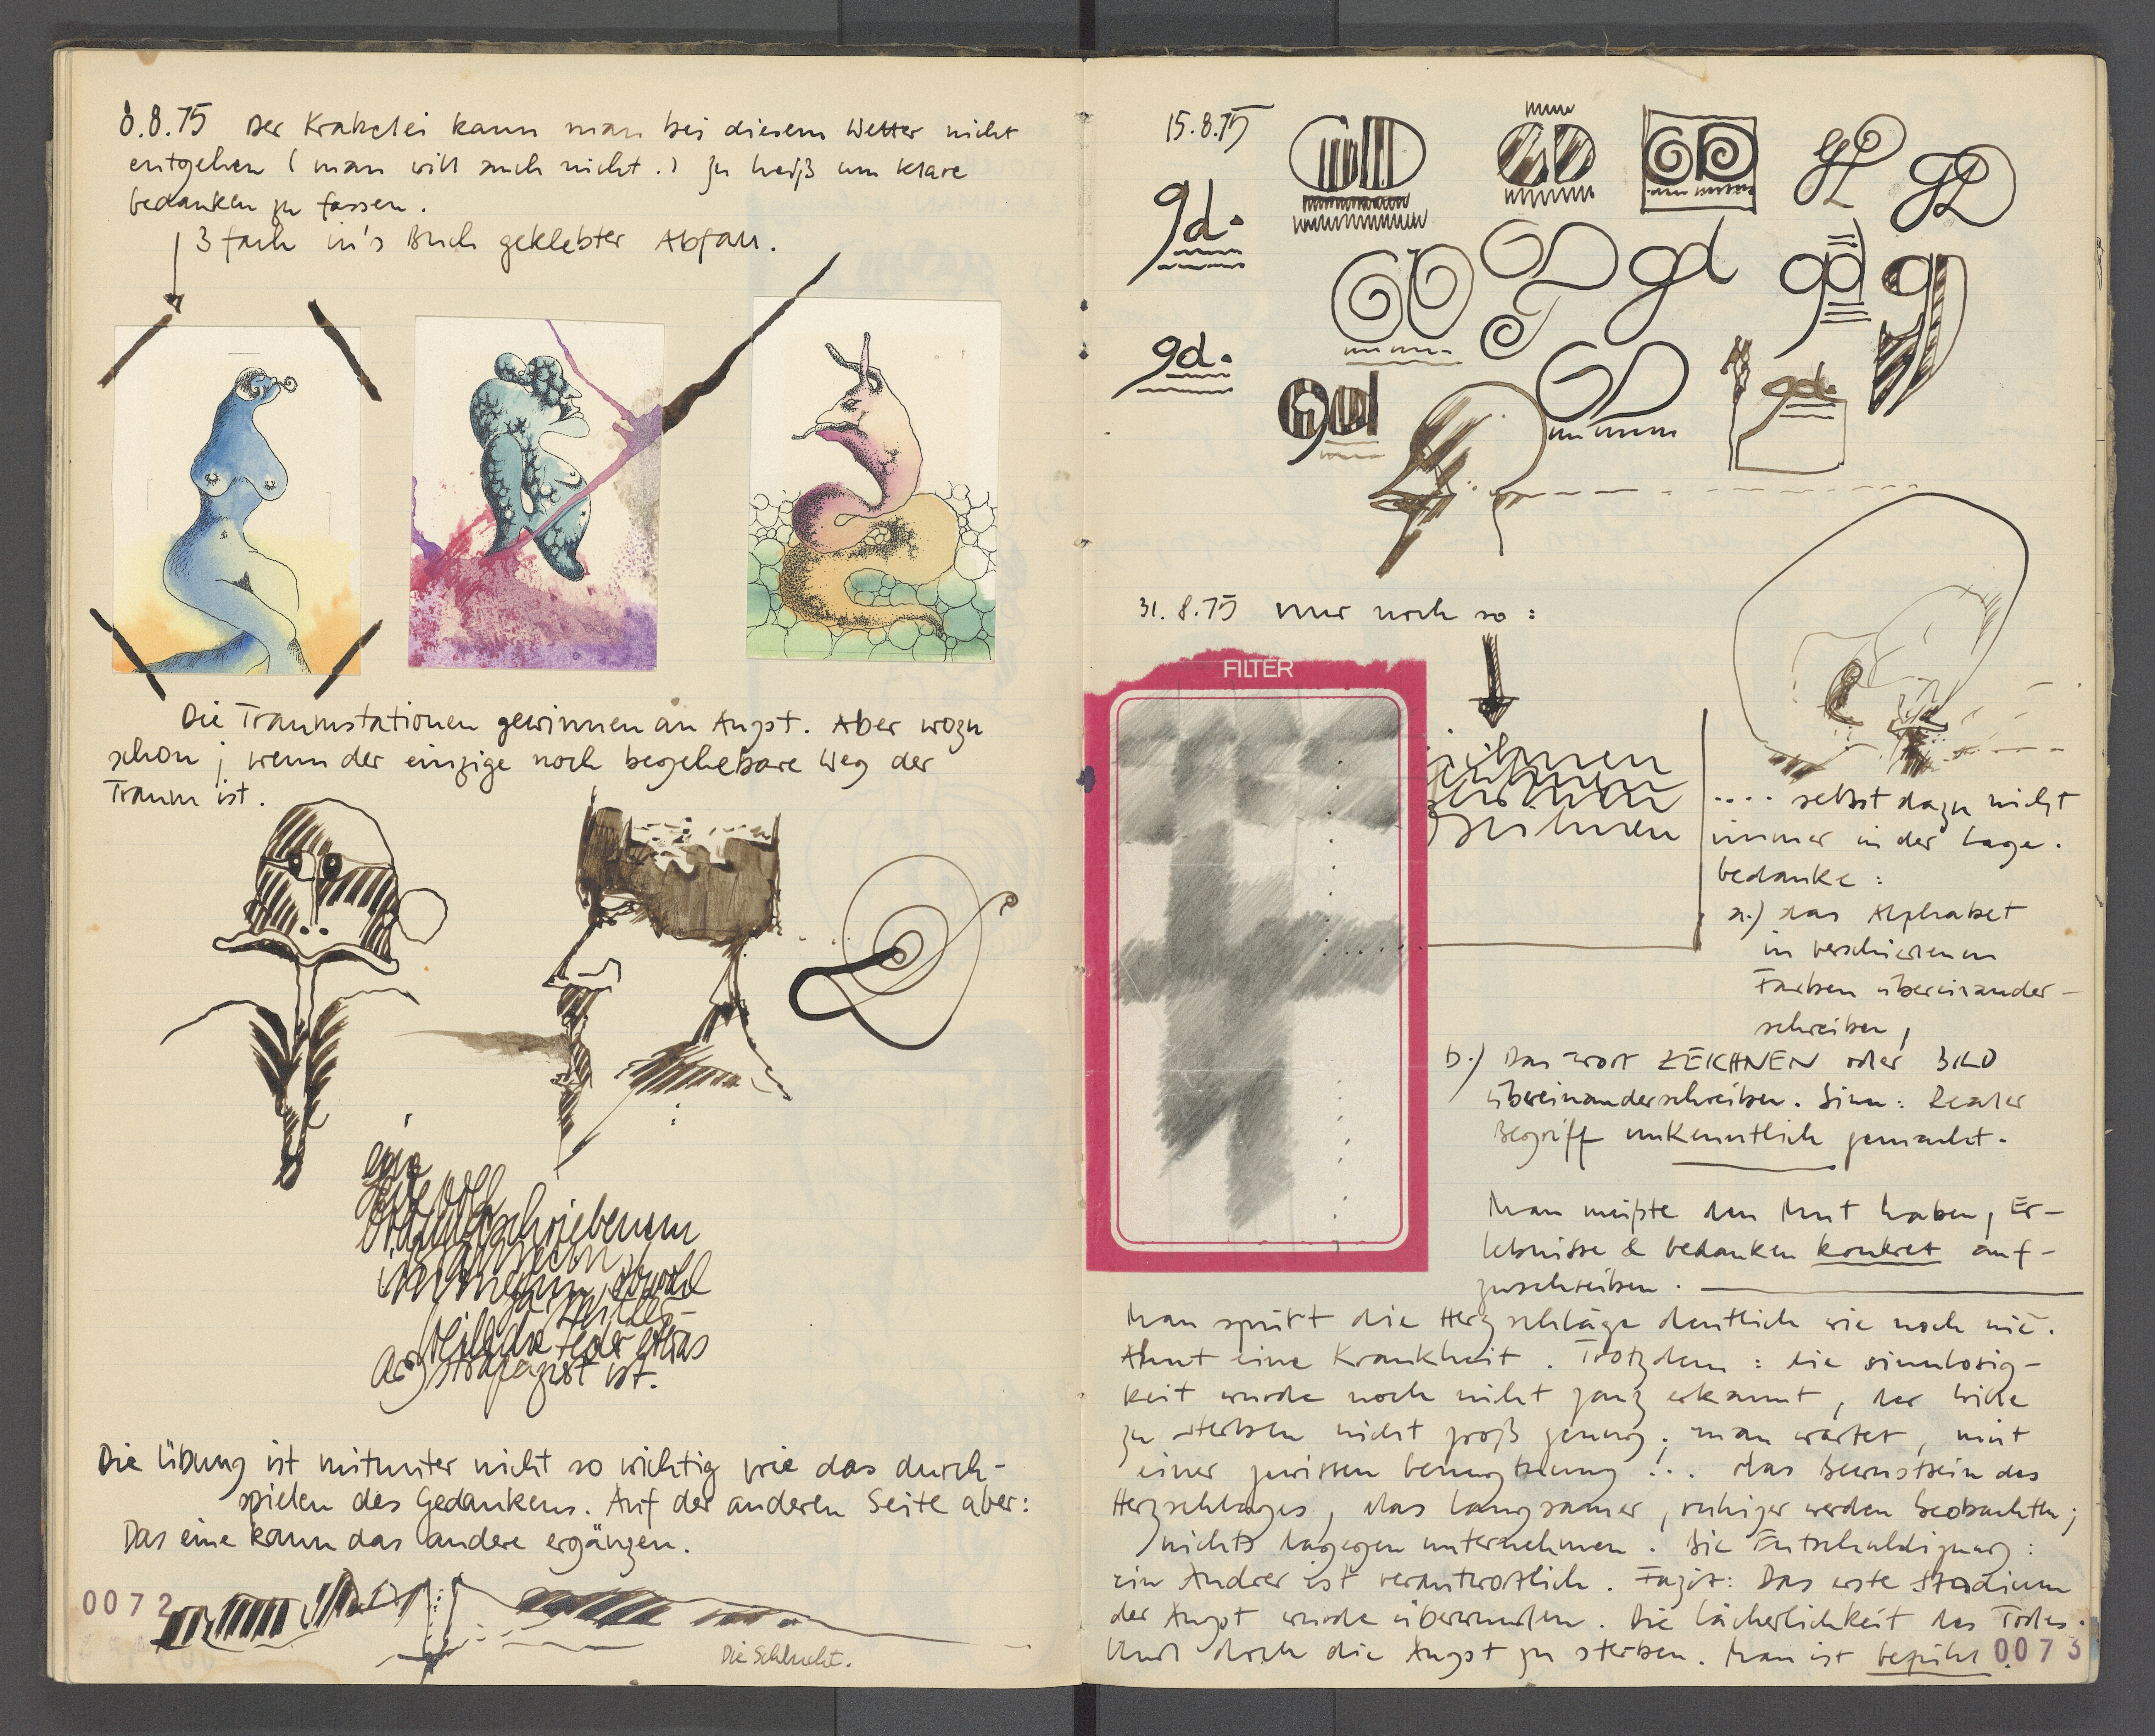 8.8.75 Der Krakelei kann man bei diesem Wetter nicht
entgehen (man will auch nicht.) Zu heiß um klare
Gedanken zu fassen.
3 fach in's Buch geklebter Abfall.
Die Traumstationen gewinnen an Angst. Aber wozu
schon; wenn der einzige noch begehebare Weg der
Traum ist.
obwohl
Feder etwas
strapaziert ist.
Die Übung ist mitunter nicht so wichtig wie das durch-
spielen des Gedankens. Auf der anderen Seite aber:
Das eine kann das andere ergänzen.
0072
Die Schlucht.
15.8.75
gd.
gd.
gd
gd
gd
gd.
31.8.75 nur noch so:
FILTER
zeichnen
.... selbst dazu nicht
immer in der Lage.
Gedanke:
a.) das Alphabet
in verschiedenen
Farben übereinander-
schreiben,
b.) Das Wort ZEICHNEN oder BILD
übereinanderschreiben. Sinn: Realer
Begriff unkenntlich gemacht.
Man müßte den Mut haben, Er-
lebnisse & Gedanken konkret auf-
zuschreiben.
Man spürt die Herzschläge deutlich wie noch nie.
Ahnt eine Krankheit. Trotzdem: die Sinnlosig-
keit wurde noch nicht ganz erkannt, der Wille
zu sterben nicht groß genug; man wartet, mit
einer gewissen Genugtuung!.. das Bewußtsein des
Herzschlages, das langsamer, ruhiger werden beobachten;
nichts dagegen unternehmen. Die Entschuldigung:
ein Andrer ist verantwortlich. Fazit: Das erste Stadium
der Angst wurde überwunden. Die Lächerlichkeit des Todes.
Und doch die Angst zu sterben. Man ist
0073